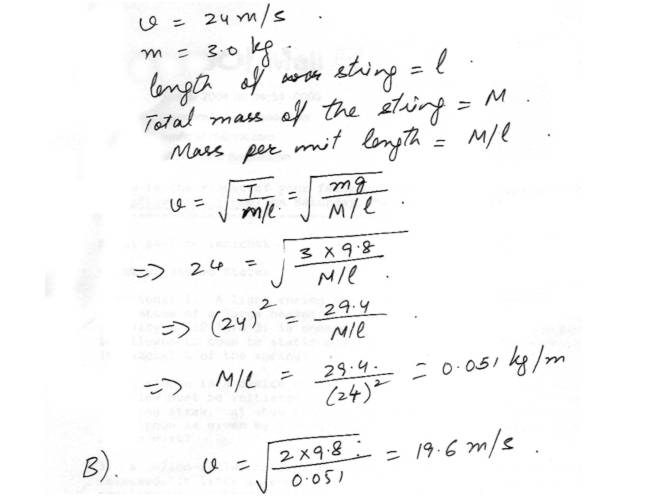 v = 24 m/s .
m = 3.0 kg .
length of string = l .
Total mass of the string = M .
Mass per unit length = M/l .
v = √(T / m/l) = √(mg / M/l) .
=> 24 = √(3 x 9.8 / M/l)
=> (24)² = 29.4 / M/l
=> M/l = 29.4. / (24)² = 0.051 kg/m
B). v = √(2 x 9.8 / 0.051) = 19.6 m/s .